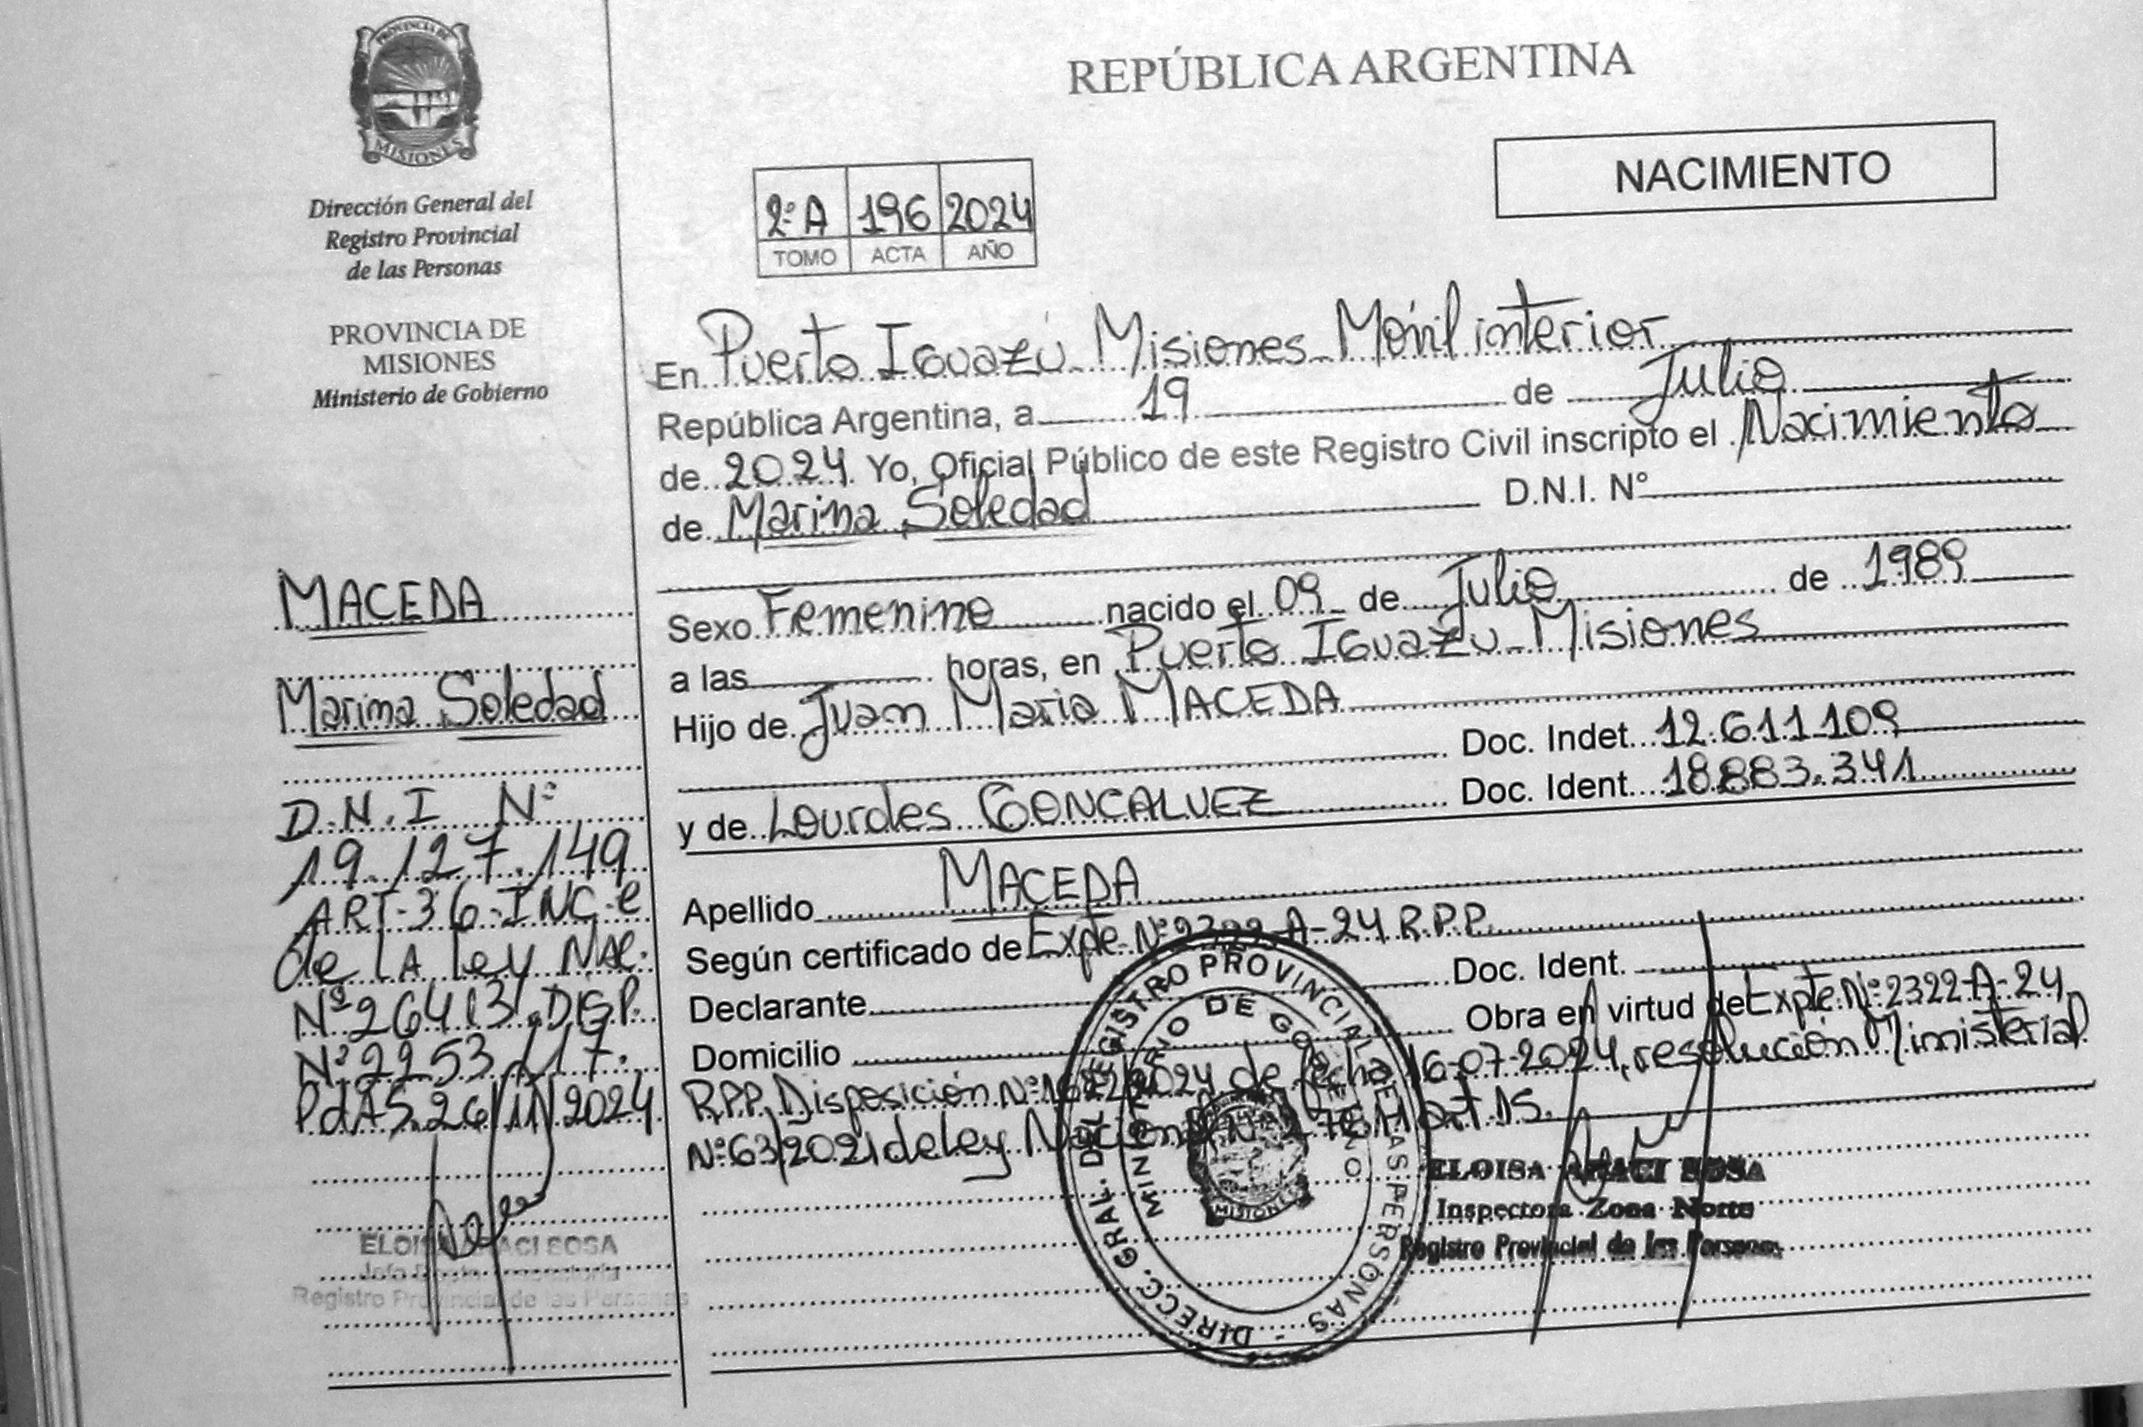 PROVINCIA DE
MISIONES
Dirección General del
Registro Provincial
de las Personas
PROVINCIA DE
MISIONES
Ministerio de Gobierno
MACEDA
Marina Soledad
D.N.I Nº
19.127.149
ART-36-INC-e
de LA ley NAC.
Nº 26413. DISP.
Nº 2253/17.
PdAS.26/IN/2024
ELOISA ARACI SOSA
Registro Provincial de las Personas
REPÚBLICA ARGENTINA
NACIMIENTO
2ºA 196 2024
TOMO ACTA AÑO
En Puerto Iguazú Misiones Móvil interior
República Argentina, a 19 de Julio
de 2024 Yo, Oficial Público de este Registro Civil inscripto el Nacimiento
de Marina Soledad D.N.I. Nº
Sexo Femenino nacido el 09 de Julio de 1989
a las horas, en Puerto Iguazu Misiones
Hijo de Juan Maria MACEDA
Doc. Indet. 12.611.109
y de Lourdes GONCALVEZ Doc. Ident. 18.883.341
Apellido MACEDA
Según certificado de Expte Nº 2322-A-24 R.P.P.
Declarante Doc. Ident.
Domicilio Obra en virtud de Expte Nº 2322-A-24
R.P.P. Disposición Nº /2024 de fecha 16-07-2024, resolución Ministerial
Nº 63/2021 de ley Nacional Art 15.
DIRECC. GRAL. DEL REGISTRO PROVINCIAL DE LAS PERSONAS -
MINISTERIO DE GOBIERNO
MISIONES
ELOISA ARACI SOSA
Inspectora Zona Norte
Registro Provincial de las Personas